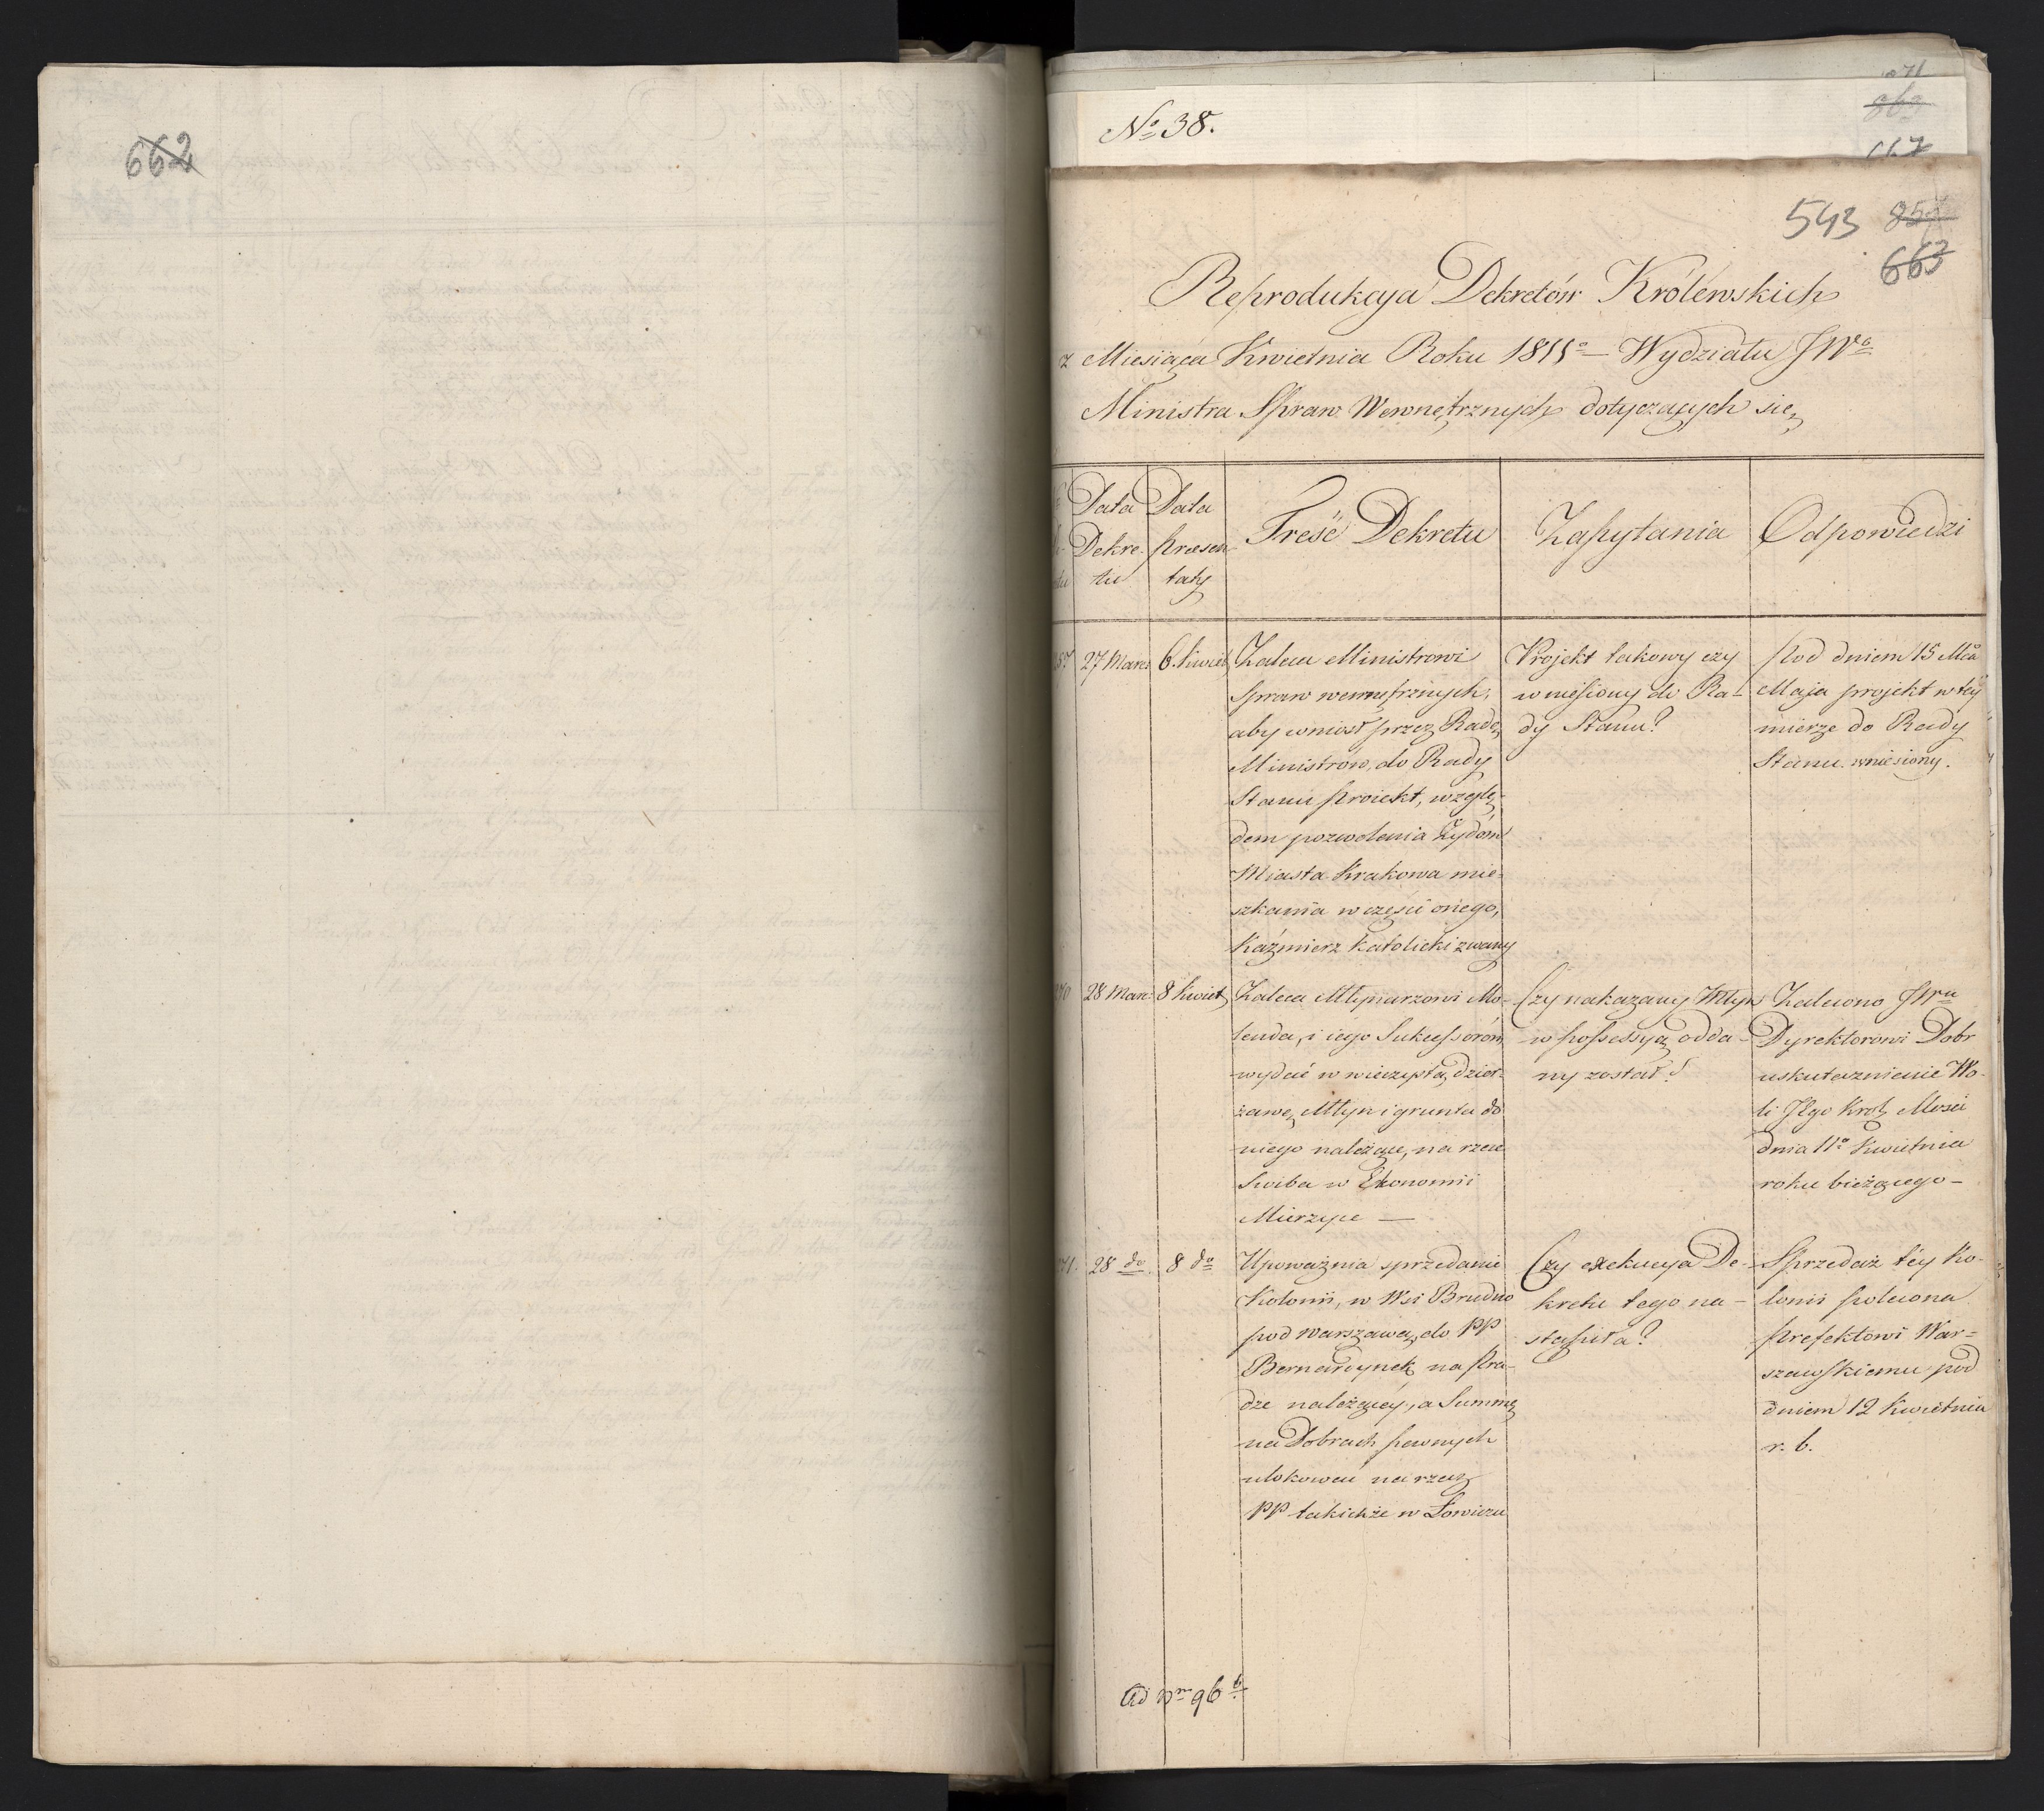 662
No 38.
871
869
667
543 857
663
Reprodukcya Dekretów Królewskich
z Miesiąca Kwietnia Roku 1811o – Wydziału JWo
Ministra Spraw Wewnętrznych dotyczących się
Data
Dekre-
tu
Data
Praesen-
taty
Treść Dekretu
Zapytania
Odpowiedzi
27 Marc:
6. Kwiet
Zaleca Ministrowi
Spraw wewnętrznych,
aby wniosł przez Radę
Ministrów, do Rady
Stanu Proiekt, wzglę-
dem pozwolenia Żydom
Miasta Krakowa mie-
szkania w części onego,
Kaźmierz Katolicki zwany
Projekt takowy czy
wniesiony do Ra-
dy Stanu?
Pod dniem 15 Mca
Maja projekt w téy
mierze do Rady
Stanu wniesiony.
270
28 Marc:
8 Kwiet
Zaleca Młynarzowi Mo-
lenda, i iego Sukcessorom
wydać w wieczystą dzier-
żawę Młyn i grunta do
niego należące, na rzece
Swiba w Ekonomii
Mierzyce —
Czy nakazany Młyn
w possessyą odda-
ny został?
Zalecono JWu
Dyrektorowi Dobr
uskutecznienie Wo-
li JEgo Krol Mosci
dnia 11o Kwietnia
roku bieżącego –
271.
28 do
8 do
Upoważnia sprzedanie
Kolonii, w Wsi Brudno
pod Warszawą, do PP
Bernardynek na Pra-
dze należącéy, a Summę
na Dobrach pewnych
ulokować na rzecz
PP takichże w Łowiczu
Czy exekucya De-
kretu tego na-
stąpiła?
Sprzedaż téy Ko-
lonii polecona
Prefektowi War-
szawskiemu pod
dniem 12 Kwietnia
r. b.
Ad Nm 96 b